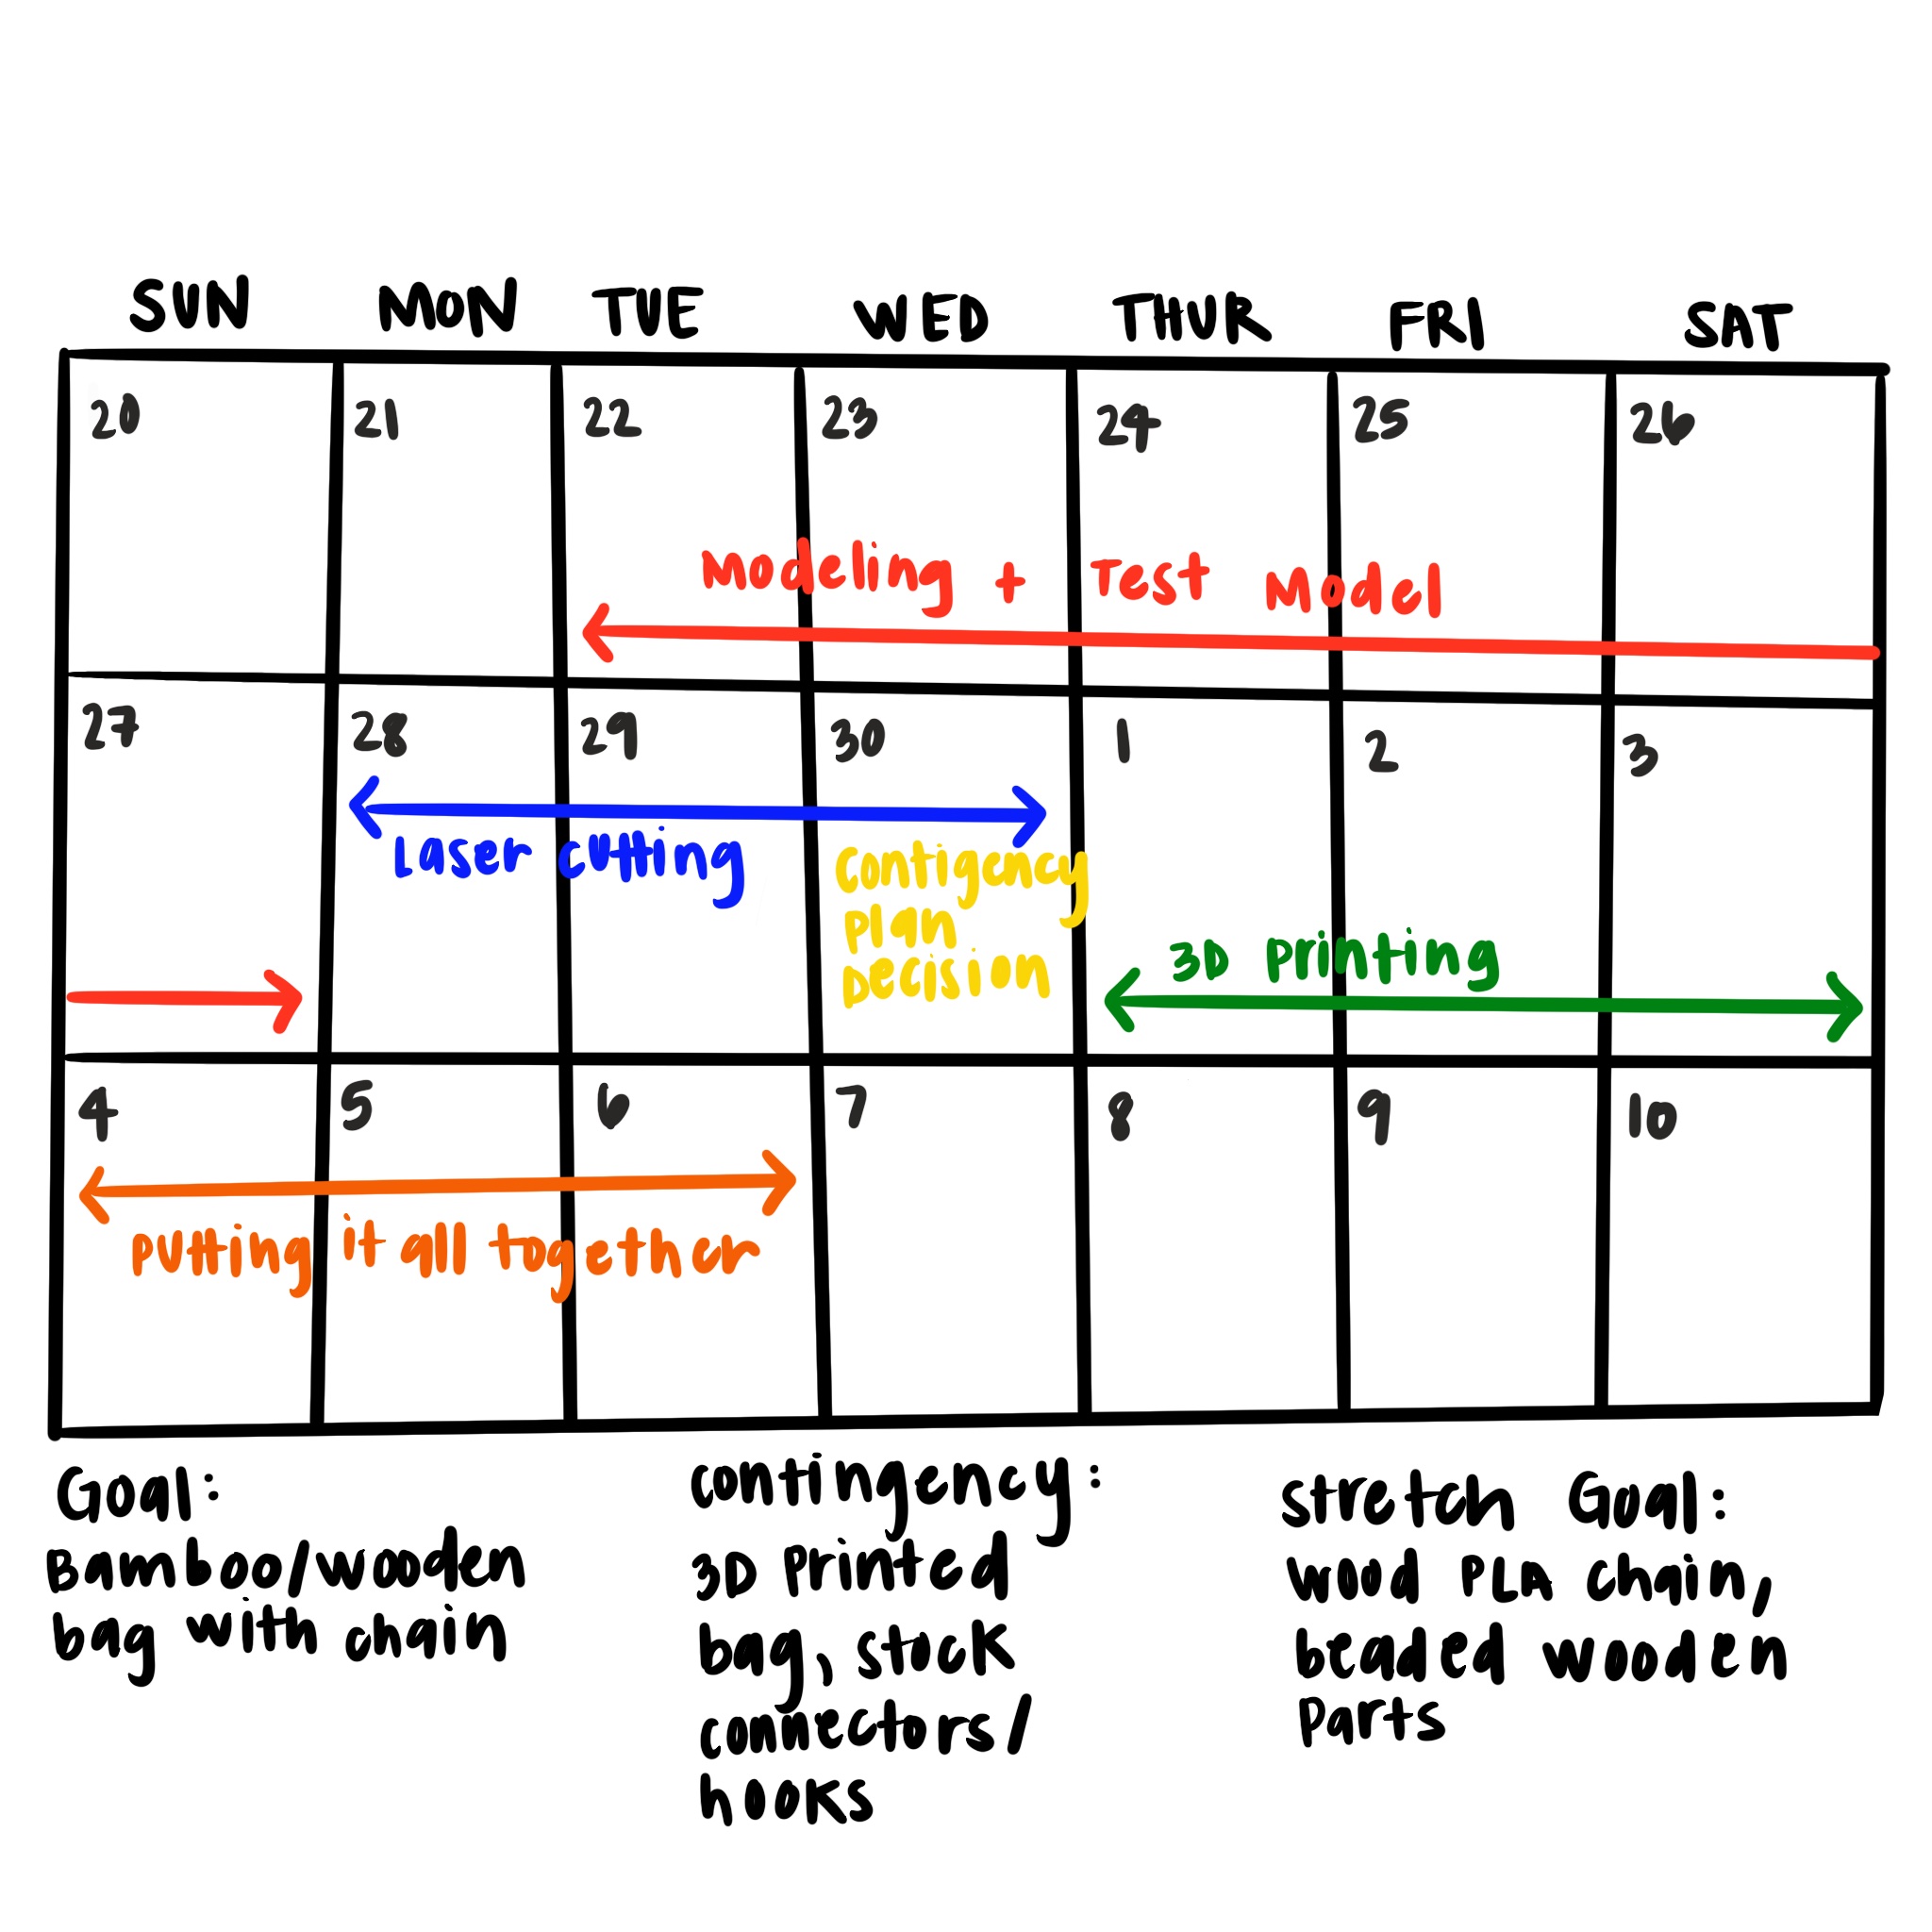 SUN MON TUE WED THUR FRI SAT
20 21 22 23 24 25 26
Modeling + Test Model
27 28 29 30 1 2 3
Laser cutting
Contigency
Plan
Decision
3D Printing
4 5 6 7 8 9 10
Putting it all together
Goal:
Bamboo/wooden
bag with chain
contingency:
3D Printed
bag, stock
connectors/
hooks
stretch Goal:
wood PLA chain,
beaded wooden
Parts